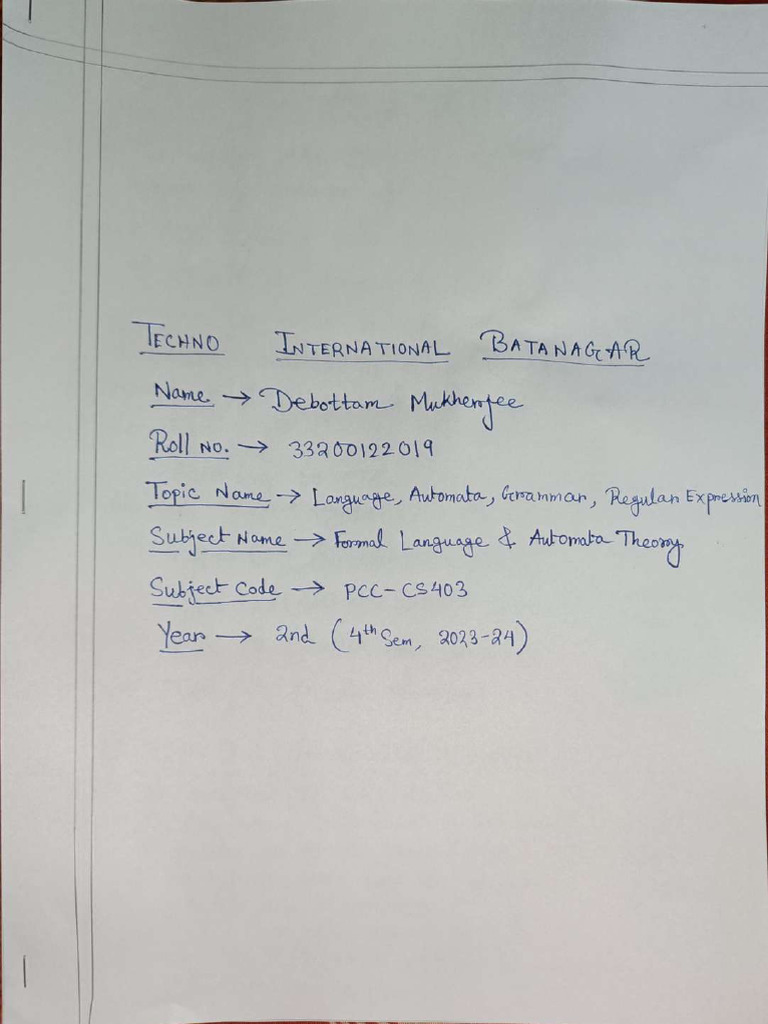 TECHNO INTERNATIONAL BATANAGAR
Name → Debottam Mukherjee
Roll NO. → 33200122019
Topic Name → Language, Automata, Grammar, Regular Expression
Subject Name → Formal Language & Automata Theory
Subject Code → PCC-CS403
Year → 2nd (4th Sem, 2023-24)